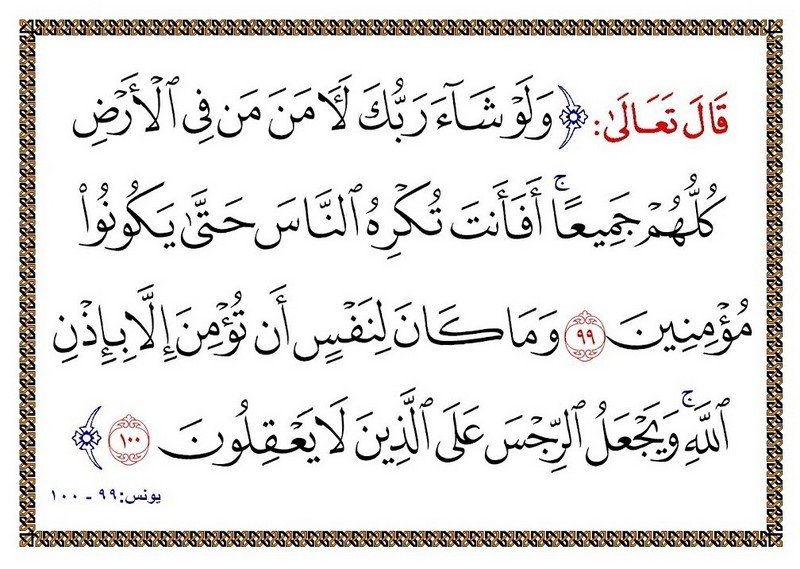 قَالَ تَعَالَىٰ: ﴿ وَلَوْ شَآءَ رَبُّكَ لَأٓمَنَ مَن فِي ٱلْأَرْضِ
كُلُّهُمْ جَمِيعًا ۚ أَفَأَنتَ تُكْرِهُ ٱلنَّاسَ حَتَّىٰ يَكُونُوا۟
مُؤْمِنِينَ ٩٩ وَمَا كَانَ لِنَفْسٍ أَن تُؤْمِنَ إِلَّا بِإِذْنِ
ٱللَّهِ ۚ وَيَجْعَلُ ٱلرِّجْسَ عَلَى ٱلَّذِينَ لَا يَعْقِلُونَ ١٠٠ ﴾
يونس: ٩٩ - ١٠٠